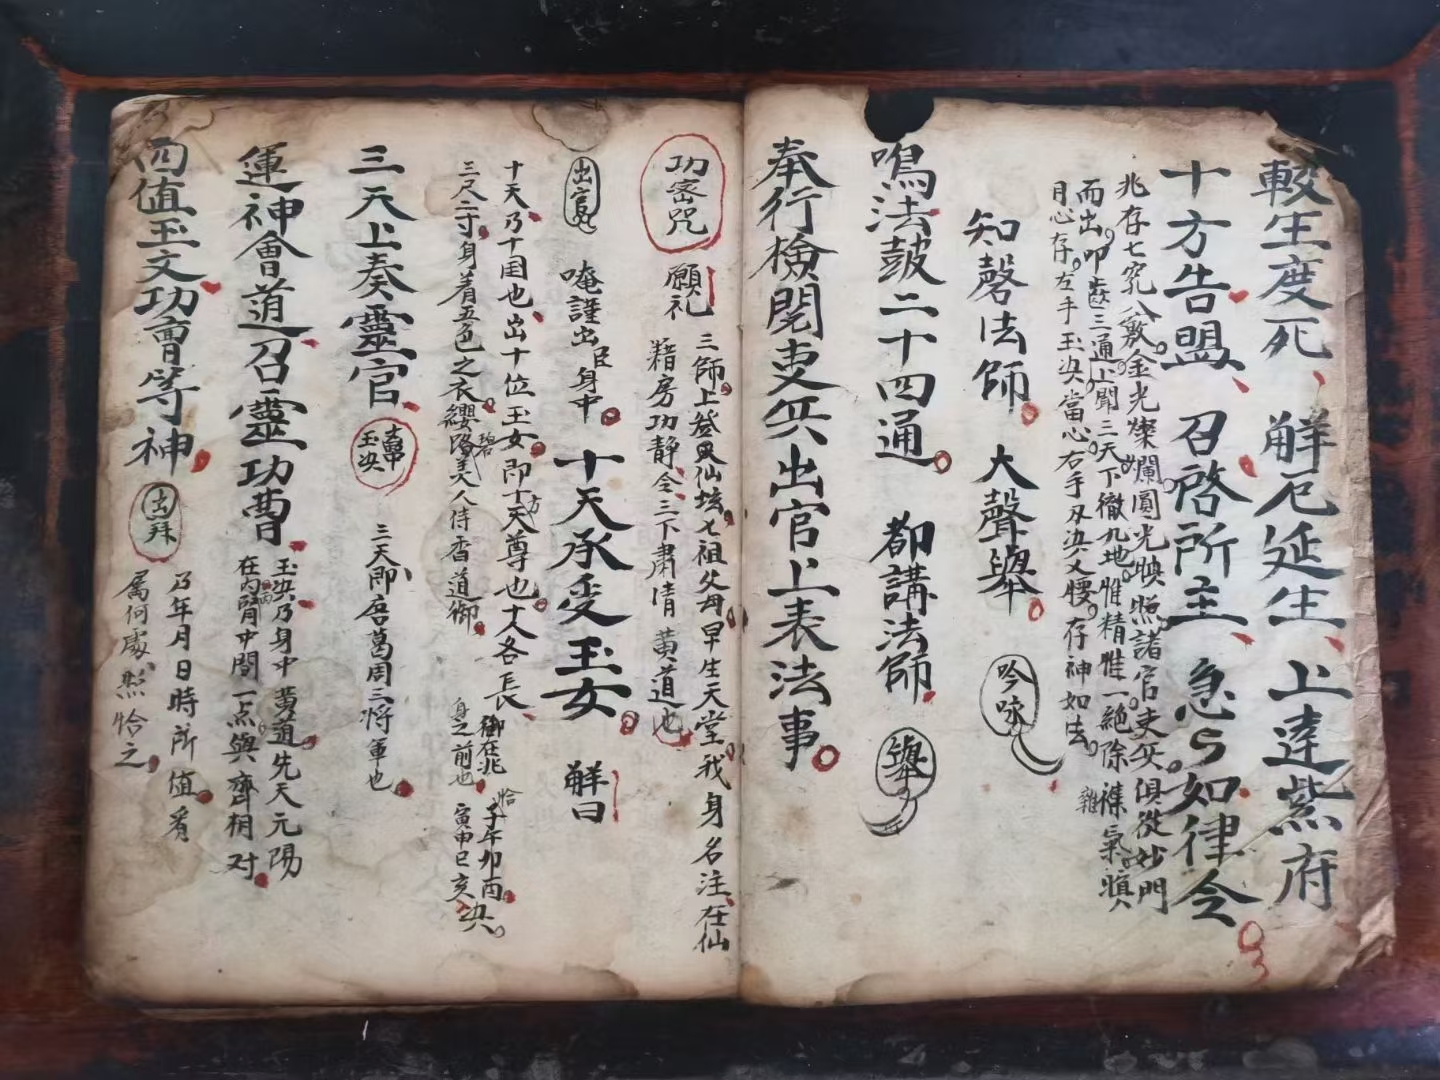 較生度死、解厄延生、上達紫府
十方告盟、召啓所主、急々如律令
兆存七竅八竅。金光燦爛圓光映照諸官吏兵俱從妙門
而出。叩齒三通上聞三天下徹九地。惟精惟一絕除襍氣。
月心存。左手玉決當心右手刄決乂腰。存神如法。
知磬法師。大聲舉。吟咏
鳴法鼓二十四通。都講法師。舉
奉行檢閱吏兵出官上表法事。
功密咒 願礼 三師。上登仙垓。七祖父母早生天堂。我身名注在仙
籍房功静。令三下肅清 黄道也
出官 唵謹出臣身中。十天承受玉女。解曰
十天乃十囯也、出十位玉女。即十方天尊也。十人各長、御在兆身之前也。恰子午卯酉、
三尺二寸。身着五色之衣。纓珞美人侍香道御。寅申巳亥決。
三天上奏靈官、玉決 三天即唐葛周三将軍也。
運神會道召靈功曹、玉決乃身中黄道。先天元陽
在内腎中間一点。與齊相对。
四值玉文功曹等神、出拜 乃年月日時所值。看
属何處。照恰之。